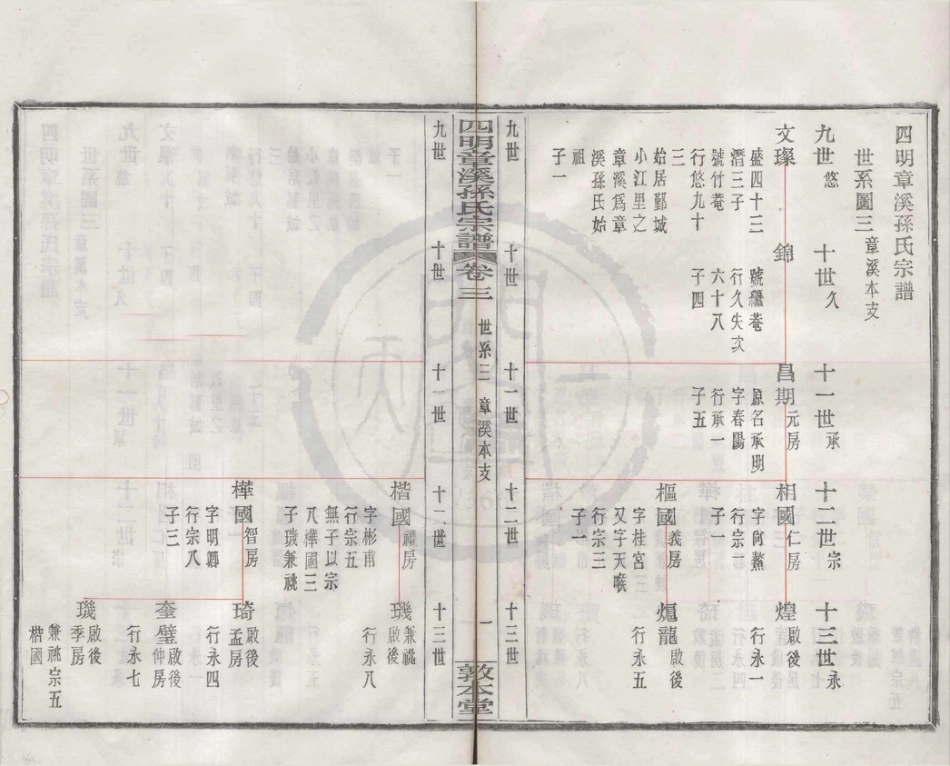 四明章溪孫氏宗譜
世系圖三章溪本支
九世悠
十世久
十一世承
十二世宗
十三世永
文璨
盛四十三
渭三子
號竹菴
行悠九十
三
始居鄞城
小江里之
章溪爲章
溪孫氏始
祖
子一
錦
號繼菴
行久失次
六十八
子四
昌期元房
原名承明
字春陽
行承一
子五
相國仁房
字尙鰲
行宗一
子一
煌啟後
行永一
樞國義房
字桂宮
又字天喉
行宗三
子一
爐龍啟後
行永五
九世
十世
十一世
十二世
十三世
四明章溪孫氏宗譜
卷三
世系三 章溪本支
一
敦本堂
九世
十世
十一世
十二世
十三世
楷國禮房
字彬甫
行宗五
無子以宗
八樺國三
子璣兼祧
璣兼祧啟後
行永八
樺國智房
字明卿
行宗八
子三
琦啟後孟房
行永四
奎璧啟後仲房
行永七
璣啟後季房
兼祧宗五
楷國